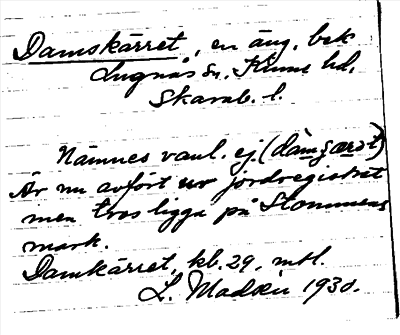 Damskärret, en äng, bek
Lugnås sn. Kinne hd.
Skarab. l.
Nämnes vanl. ej (damsæret)
Är nu avfört ur jordregistret
men tros ligga på Stommens
mark.
Damkärret, kb. 29, mtl.
L. Modin 1930.